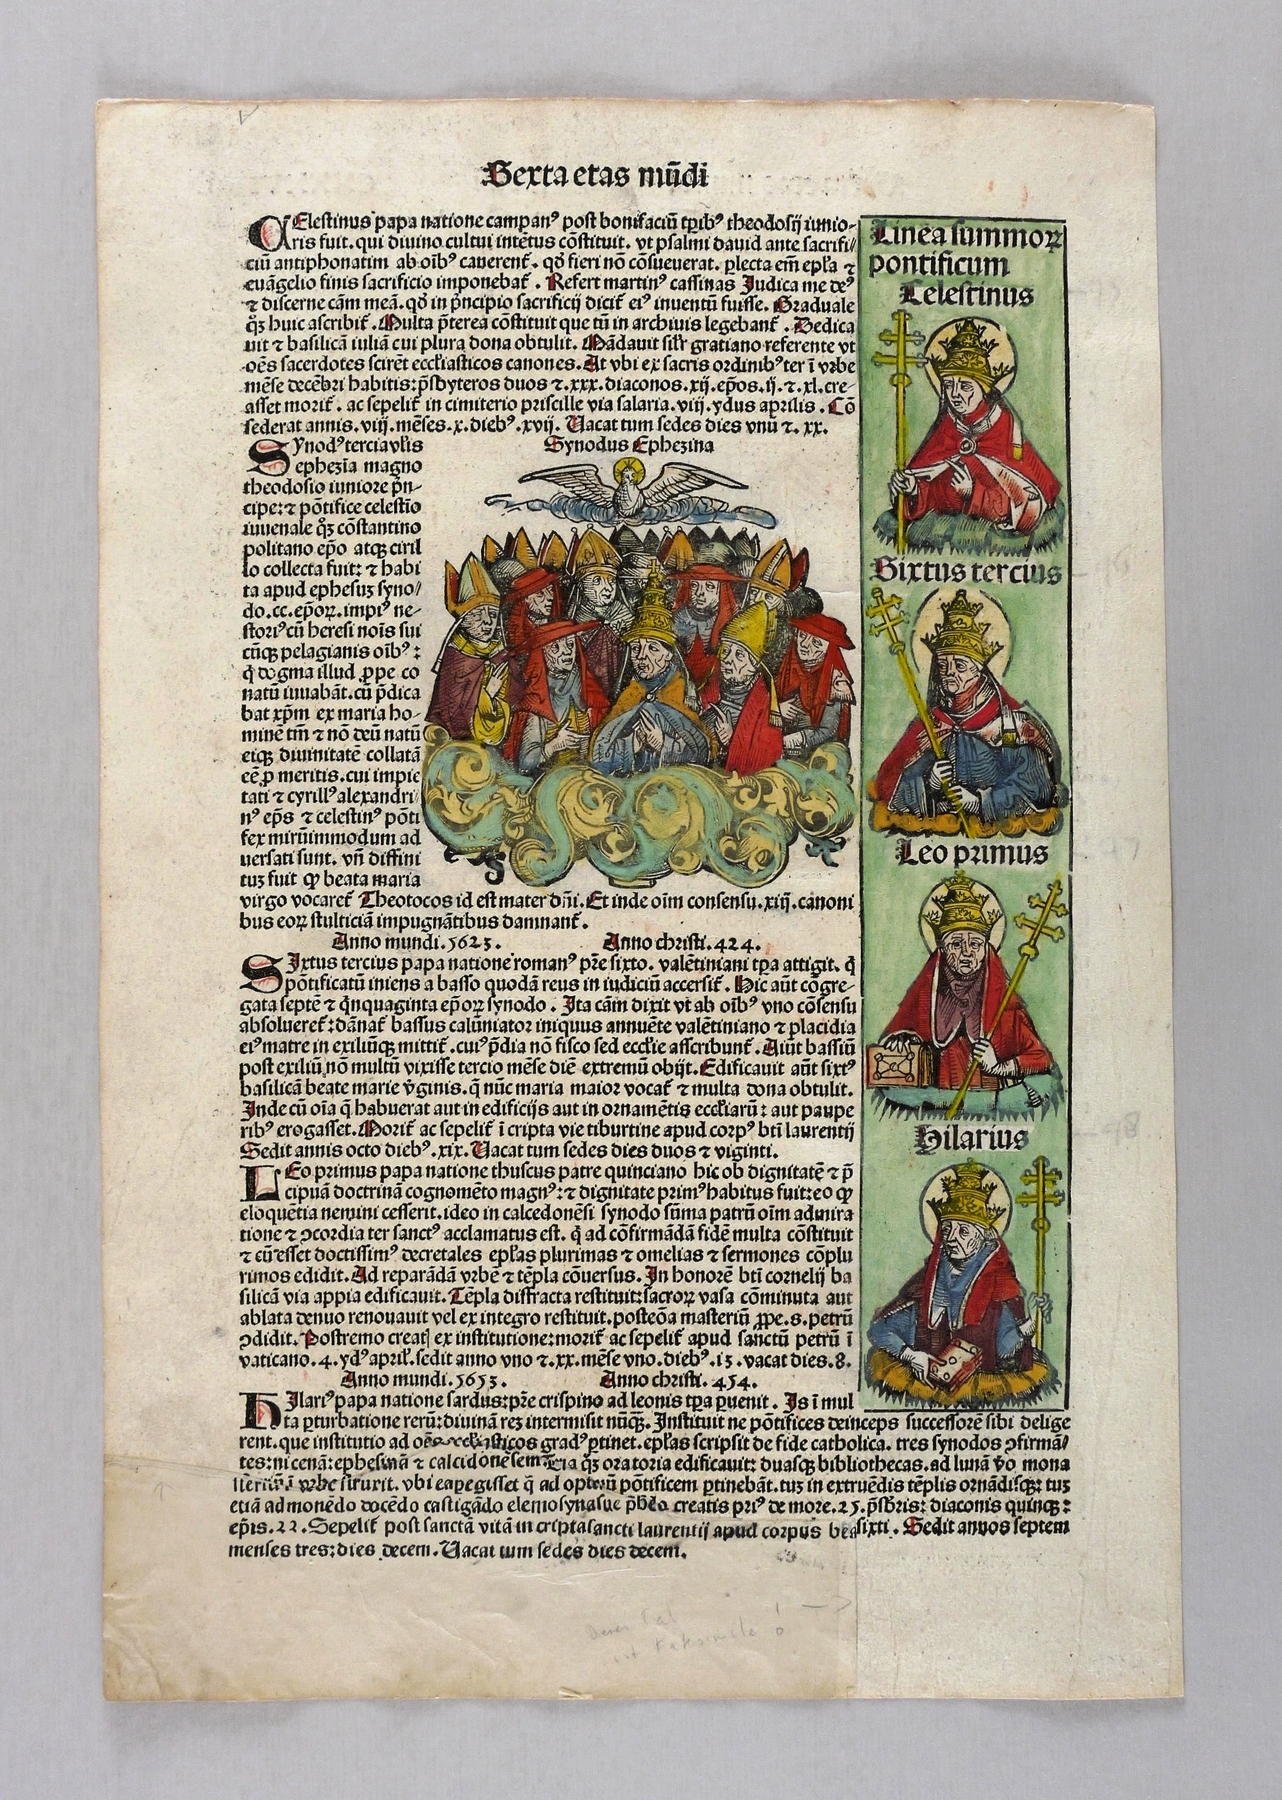 Sexta etas mūdi
CElestinus papa natione campanꝰ post bonifaciū tꝑibꝰ theodosij iunio-
ris fuit. qui diuino cultui intētus cōstituit. vt psalmi dauid ante sacrifi/
ciū antiphonatim ab oībꝰ cauerent̄. qđ fieri nō cōsueuerat. ꝑlecta em̄ epl̄a ⁊
euāgelio finis sacrificio imponebat̄. Refert martinꝰ cassinas Judica me deꝰ
⁊ discerne cām meā. qđ in p̄ncipio sacrificij dicit̄ eiꝰ inuentū fuisse. Graduale
qꝫ huic ascribit̄. Multa p̄terea cōstituit que tū in archiuis legebant̄. Dedica
uit ⁊ basilicā iuliā cui plura dona obtulit. Mādauit sil̄r gratiano referente vt
oēs sacerdotes scirēt eccl̄iasticos canones. At vbi ex sacris ordinibꝰ ter ī vrbe
mēse decēbri habitis: p̄sbyteros duos ⁊.xxx. diaconos.xij. ep̄os.ij.⁊.xl. cre-
asset morit̄. ac sepelit̄ in cimiterio priscille via salaria. viij. ydus aprilis. Cō
sederat annis. viij. mēses.x. diebꝰ.xvij. Uacat tum sedes dies vnū ⁊. xx.
Synodus Ephezina
Synodꝰ tercia vl̄is
ephezīa magno
theodosio iuniore p̄n-
cipe: ⁊ pōtifice celestīo
iuuenale qꝫ cōstantino
politano ep̄o atqꝫ ciril
lo collecta fuit: ⁊ habi
ta apud ephesuꝫ syno/
do.cc.ep̄oꝝ. impiꝰ ne-
storiꝰ cū heresi noīs sui
cūqꝫ pelagianis oībꝰ:
q̄ dogma illud ꝓpe co
natū iuuabāt. cū p̄dica
bat xp̄m ex maria ho-
minē tm̄ ⁊ nō deū natū
eiqꝫ diuinitatē collatā
eē ꝓ meritis. cui impie
tati ⁊ cyrillꝰ alexandri
nꝰ ep̄s ⁊ celestinꝰ pōti
fex mirūimmodum ad
uersati sunt. vn̄ diffini
tuꝫ fuit ꝙ beata maria
virgo vocaret̄ Theotocos id est mater dn̄i. Et inde oīm consensu.xiij. canoni
bus eoꝝ stulticiā impugnātibus damnant̄.
Anno mundi. 5623. Anno christi. 424.
SIxtus tercius papa natione romanꝰ pr̄e sixto. valētiniani tꝑa attigit. q̄
pōtificatū iniens a basso quodā reus in iudiciū accersit̄. Hic aūt cōgre-
gata septē ⁊ qīnquaginta ep̄oꝝ synodo. Ita cām dixit vt ab oībꝰ vno cōsensu
absolueret̄: dānat̄ bassus calūniator iniquus annuēte valētiniano ⁊ placidia
eiꝰ matre in exiliūqꝫ mittit̄. cuiꝰ p̄dia nō fisco sed eccl̄ie asscribunt̄. Aiūt bassiū
post exiliū nō multū vixisse tercio mēse diē extremū obijt. Edificauit aūt sixtꝰ
basilicā beate marie v̄ginis. q̄ nūc maria maior vocat̄ ⁊ multa dona obtulit.
Inde cū oīa q̄ habuerat aut in edificijs aut in ornamētis eccl̄iarū: aut paupe
ribꝰ erogasset. Morit̄ ac sepelit̄ ī cripta vie tiburtine apud corpꝰ btī laurentij
Sedit annis octo diebꝰ.xix. Uacat tum sedes dies duos ⁊ viginti.
LEo primus papa natione thuscus patre quinciano hic ob dignitatē ⁊ p̄
cipuā doctrinā cognomēto magnꝰ: ⁊ dignitate primꝰ habitus fuit: eo ꝙ
eloquētia nemini cesserit. ideo in calcedonēsi synodo sūma patrū oīm admira
tione ⁊ ꝯcordia ter sanctꝰ acclamatus est. q̄ ad cōfirmādā fidē multa cōstituit
⁊ cū esset doctissimꝰ decretales epl̄as plurimas ⁊ omelias ⁊ sermones cōplu
rimos edidit. Ad reparādā vrbē ⁊ tēpla cōuersus. In honorē btī cornelij ba
silicā via appia edificauit. Tēpla diffracta restituit: sacroꝝ vasa cōminuta aut
ablata denuo renouauit vel ex integro restituit. posteōa masteriū ꝓpe.s.petrū
ꝯdidit. Postremo creat̄ ex institutione: morit̄ ac sepelit̄ apud sanctū petrū ī
vaticano. 4. ydꝰ april̄. sedit anno vno ⁊.xx. mēse vno. diebꝰ.13. vacat dies.8.
Anno mundi. 5653. Anno christi. 454.
HIlariꝰ papa natione sardus: pr̄e crispino ad leonis tꝑa ꝑuenit. Is ī mul
ta ꝑturbatione rerū: diuinā reꝫ intermisit nūqꝫ. Instituit ne pōtifices deinceps successorē sibi delige
rent. que institutio ad oēs eccl̄iasticos gradꝰ ꝑtinet. epl̄as scripsit de fide catholica. tres synodos ꝯfirmā/
tes: nicenā: ephesinā ⁊ calcidonēsem qꝫ oratoria edificauit: duasqꝫ bibliothecas. ad lunā v̄o mona
steriū ī vrbe struxit. vbi q̄ ad pōtificem ꝑtinebāt. tuꝫ in extruēdis tēplis ornādisqꝫ: tuꝫ
etiā admonēdo docēdo castigādo elemosynasue creatis priꝰ de more.25. p̄sbr̄is: diaconis quinqꝫ:
ep̄is.22. Sepelit̄ post sanctā vitā in cripta sancti laurentij apud corpus sixti. Sedit annos septem
menses tres: dies decem. Uacat tum sedes dies decem.
Linea summoꝝ
pontificum
Celestinus
Sixtus tercius
Leo primus
Hilarius